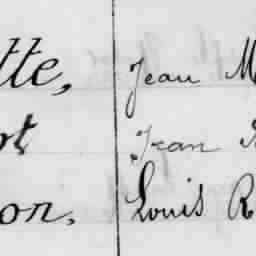 tte, Jean M
ot Jean
on. Louis R